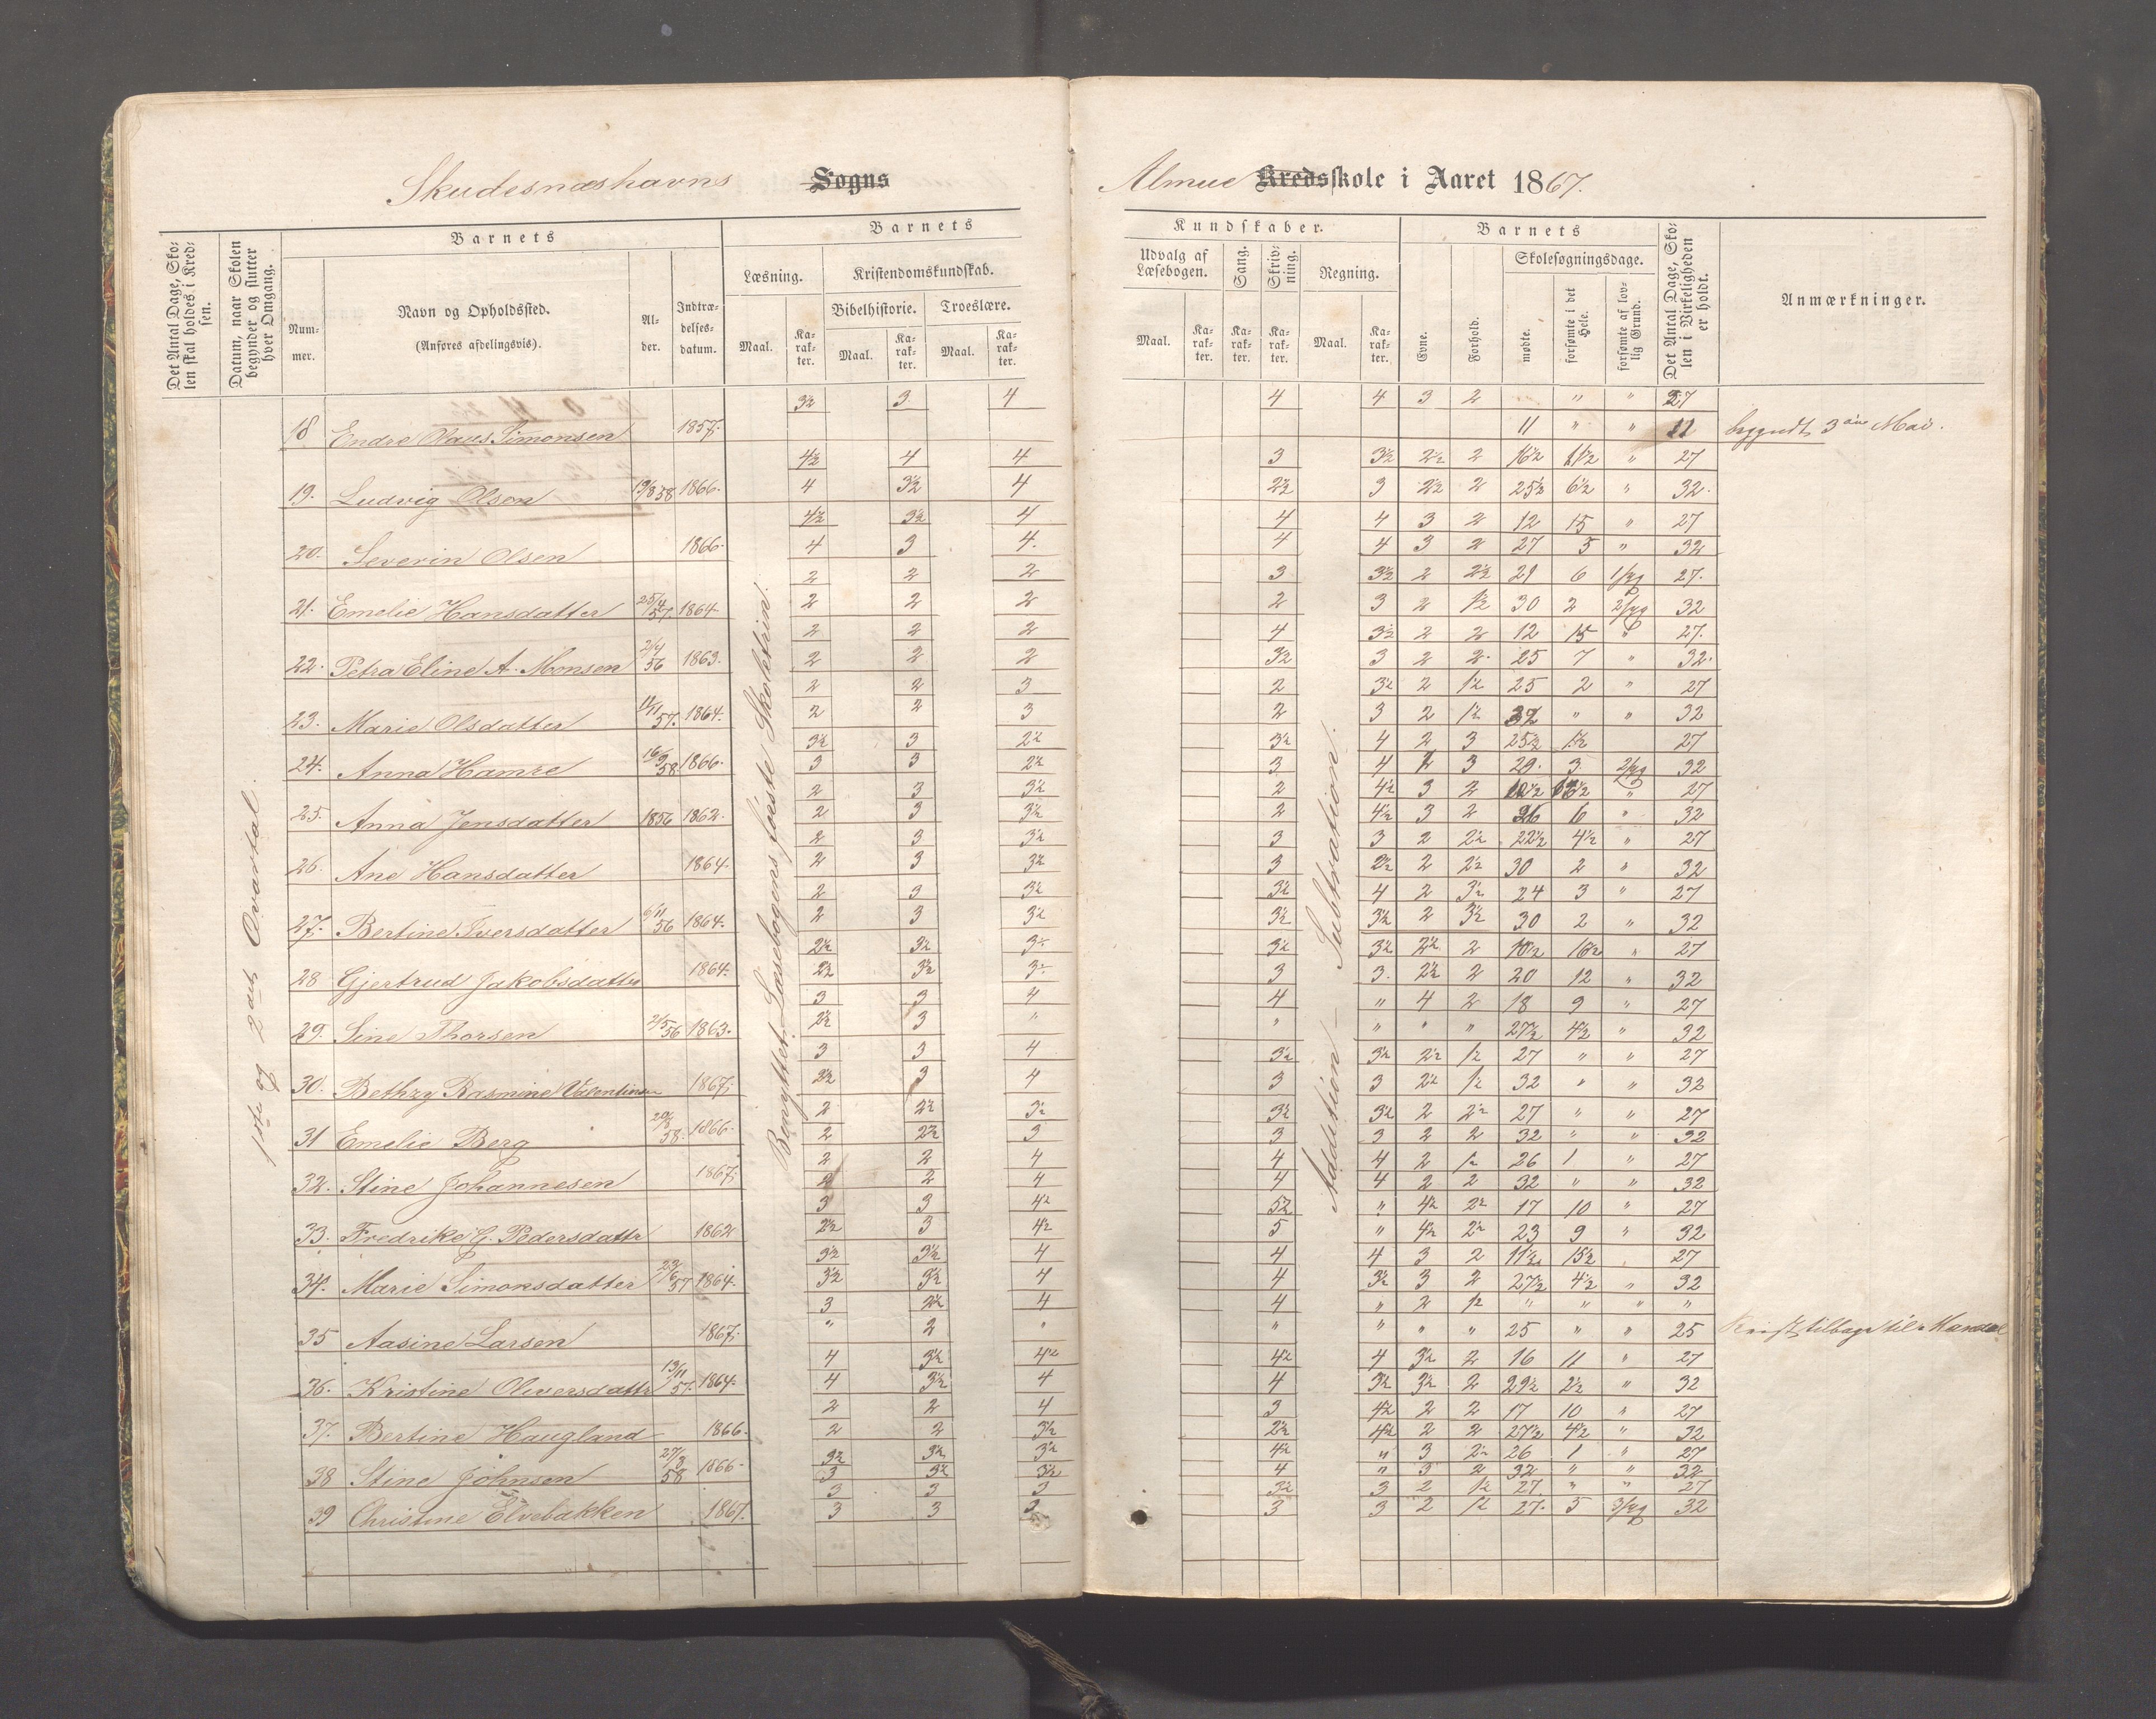 Skudesnæshavns Sogns
Almue Kredsskole i Aaret 1867.
Det Antal Dage, Skolen skal holdes i Kredsen.
Datum, naar Skolen begynder og slutter hver Omgang.
Barnets
Nummer.
Navn og Opholdssted.
(Anføres afdelingsvis).
Alder.
Indtrædelsesdatum.
Barnets
Læsning.
Maal.
Karakter.
Kristendomskundskab.
Bibelhistorie.
Maal.
Karakter.
Troeslære.
Maal.
Karakter.
Kundskaber.
Udvalg af Læsebogen.
Maal.
Karakter.
Sang.
Karakter.
Skrivning.
Karakter.
Regning.
Maal.
Karakter.
Barnets
Evne.
Forhold.
Skolesøgningsdage.
mødte.
forsømte i det Hele.
forsømte af lovlig Grund.
Det Antal Dage, Skolen i Virkeligheden er holdt.
Anmærkninger.
1ste og 2det Qvartal.
Benyttet: Læsebogens føeste Skoletrin.
Addition – Subtration.
3½ 3 4 4 4 3 2 " " 27
18 Endre Olaus Simonsen 1857. 11 " " 11 begyndt 3die Mai.
4½ 4 4 3 3½ 2½ 2 16½ 11½ " 27
19. Ludvig Olsen 19/8 58 1866. 4 3½ 4 2½ 3 2½ 2 25½ 6½ " 32.
4½ 3½ 4 4 4 3 2 12 15 " 27
20. Severin Olsen 1866. 4 3 4. 4 4 3 2 27 5 " 32
2 2 2 3 3½ 2 2½ 21 6 1/syg 27.
21. Emelie Hansdatter 25/4 57. 1864 2 2 2 2 3 2 1½ 30 2 2/syg 32
2 2 2 4 3½ 2 2 12 15 " 27.
22. Petra Eline A. Monsen 2/4 56 1863. 2 2 2 3½ 3 2 2. 25 7 " 32.
2 2 3 2 3½ 2 1½ 25 2 " 27
23. Marie Olsdatter 12/11 57. 1864. 2 2 3 2 3 2 1½ 32 " " 32
3½ 3 2½ 3½ 4 2 3 25½ 1½ 27
24. Anna Hamre 16/9 58 1866. 3 3 2½ 3 4 2 3 29. 3 2/syg 32
2 3 3½ 2 4½ 3 2 10½ 16½ " 27
25. Anna Jensdatter 1856 1862. 2 3 3½ 2 4½ 3 2 26 6 " 32
2 3 3½ 3 3 2 2½ 22½ 4½ " 27
26. Ane Hansdatter 1864. 2 3 3½ 3 2½ 2 2½ 30 2 " 32
2 3 3½ 3½ 4 2 3½ 24 3 " 27
27. Bertine Iversdatter 6/11 56 1864. 2 3 3½ 3½ 3½ 2 3½ 30 2 " 32
2½ 3½ 3½ 3½ 3½ 2½ 2 10½ 16½ " 27
28 Gjertrud Jakobsdatter 1864. 2½ 3½ 3½ 3 3. 2½ 2 20 12 " 32
3 3 4 4 " 4 2 18 9 " 27
29. Sine Thorsen 2/5 56 1863. 2½ 3 " " " " " 27½ 4½ " 32
3 3 4 3½ 3½ 2½ 1½ 27 " " 27
30. Bethzy Rasmine Valentinsen 1867. 2½ 3 4 3 3 2½ 1½ 32 " " 32
2 2½ 3½ 3½ 3½ 2 2½ 27 " " 27
31 Emelie Berg 58. 1866. 2 2½ 3 3 3 2 2 32 " " 32
2 2 4 4 4 2 1½ 26 1 " 27
32. Stine Johannesen 1867. 2 2 4 4 4 2 2 32 " " 32
3 3 4½ 5½ " 4½ 2½ 17 10 " 27
33. Fredrike G. Pedersdattr 1862 2½ 3 4½ 5 " 4½ 2½ 23 9 " 32
3½ 3½ 4 4 4 3 2 11½ 15½ 27
34. Marie Simonsdatter 23/6 57 1864. 3½ 3½ 4 4 3½ 3 2 27½ 4½ " 32
3 2½ 4 4 " 2 1½ " " " "
35 Aasine Larsen 1867. " 2 " " " " " 25 " " 25 tilbage til Mandal
4 3½ 4½ 4½ 4 3½ 2 16 11 " 27
36. Kristine Oliversdattr 13/11 57. 1864. 4 3½ 4 4 3½ 3½ 2 29½ 2½ " 32
2 2 4 3 4½ 2 2 17 10 " 27
37. Bertine Haugland 1866. 2 2 3½ 2½ 4½ 2 2 27½ 4½ " 32
3½ 3½ 3½ 4½ " 3 2½ 26 1 " 27
38 Stine Johnsen 27/8 58 1866. 3 3½ 3½ 4 " 3 2 32 " " 32
3 3 3 3½ 3 2 1½ 27. " " 27
39 Christine Elvebakken 1867. 3 3 3 3 3 2 1½ 27. 5 3/syg 32